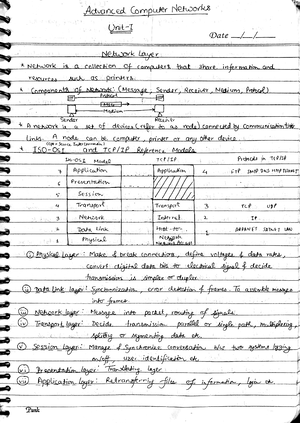 Advanced Computer Networks
Unit-I
Date __/__/__
Network Layer
* Network is a collection of computers that share information and
resources such as printers.
* Components of Network: (Message, Sender, Receiver, Medium, Protocol)
Protocol
Msg
Medium
Sender
* A network is a set of devices (refer to as node) connected by Communication
links. A node can be computer, printer or any other device.
* ISO-OSI and TCP/IP Reference Models
Model TCP/IP Protocols in TCP/IP
7 Application Application 4
6 Presentation
5 Session
4 Transport Transport 3 TCP UDP
3 Network Internet 2 IP
2 Data Link Host-to- 1 ARPANET SATNET LAN
1 Physical Network
(i) Physical layer: Make & break connections, define voltages & data rates,
convert digital data bits to electrical signal & decide
transmission is simplex or duplex.
(ii) Data Link layer: Synchronization, error detection & frames. To assemble message
into frames.
(iii) Network layer: Message into packet, routing of signals.
(iv) Transport layer: Decide transmission parallel or single path, multiplexing,
splitting or segmenting data etc.
(v) Session layer: Manage & Synchronize conversation b/w two systems logging
on/off, user identification etc.
(vi) Presentation layer: Translating layer
(vii) Application layer: Retransferring files of information, login etc.